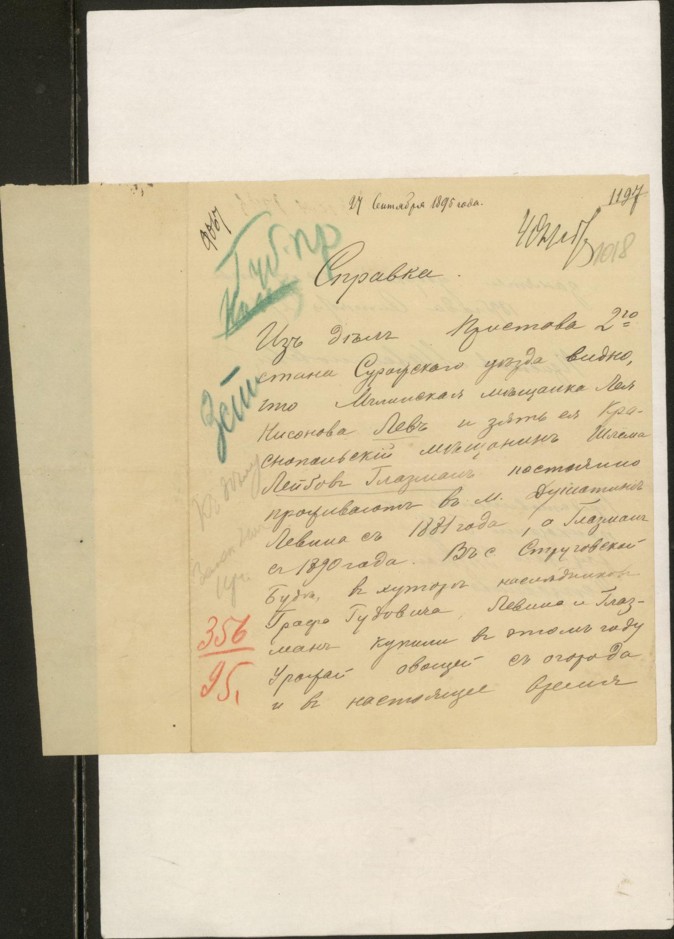 27 Сентября 1895 года.
1197
1018
Губ. пр
Справка.
Изъ дѣлъ Пристова 2го
стана Суражскаго уѣзда видно,
что Мглинская мѣщанка Лея
Нисонова Левъ и зять ея Кра-
снопольскій мѣщанинъ Шлема
Лейбовъ Глазманъ постоянно
проживаютъ въ м. Душатинѣ
Левина съ 1881 года, а Глазманъ
съ 1890 года. Въ с Струговской
Будѣ, въ хуторѣ наслѣдниковъ
Графа Гудовича, Левина и Глаз-
манъ купили въ этомъ году
Урожай овощей съ огорода
и въ настоящее время
Къ дѣлу
356
95.